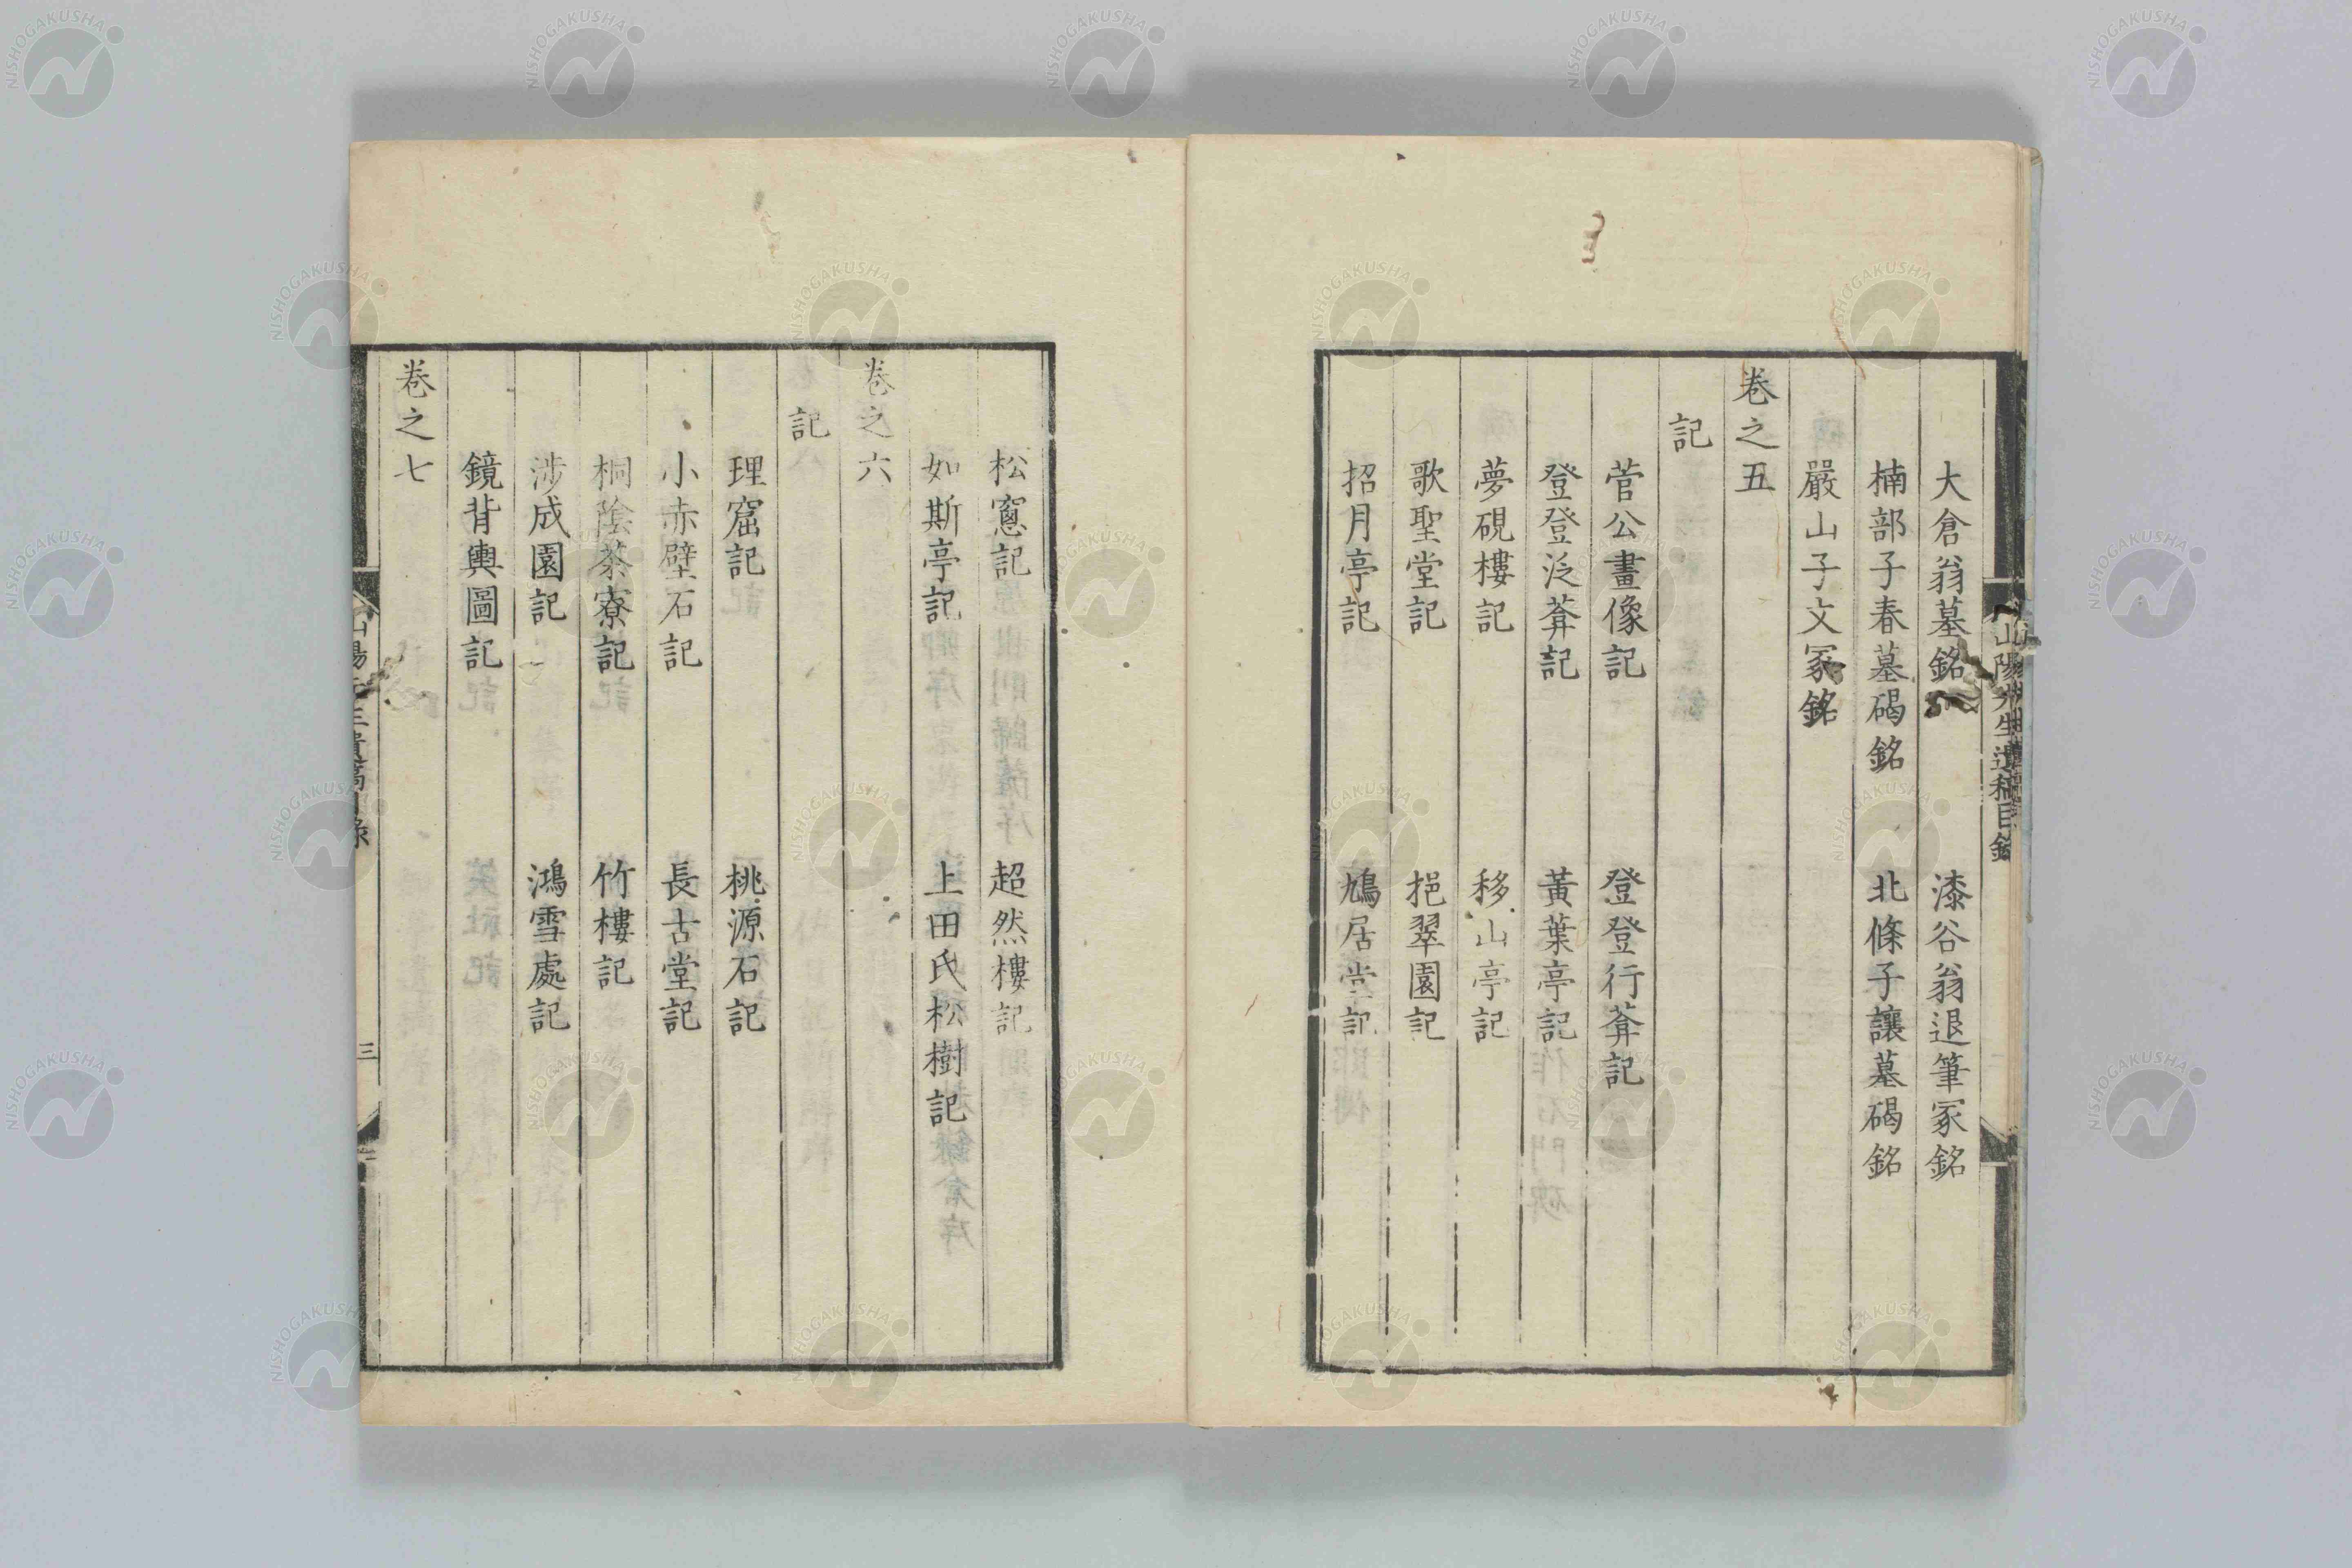 大倉翁墓銘　漆谷翁退筆冢銘
楠部子春墓碣銘　北條子讓墓碣銘
嚴山子文冢銘
卷之五
記
菅公畫像記　登登行葊記
登登泛葊記　黃葉亭記
夢硯樓記　移山亭記
歌聖堂記　挹翠園記
招月亭記　鳩居堂記
山陽先生遺稿目錄
松窻記　超然樓記
如斯亭記　上田氏松樹記
卷之六
記
理窟記　桃源石記
小赤壁石記　長古堂記
桐陰茶寮記　竹樓記
涉成園記　鴻雪處記
鏡背輿圖記
卷之七
三
NISHOGAKUSHA